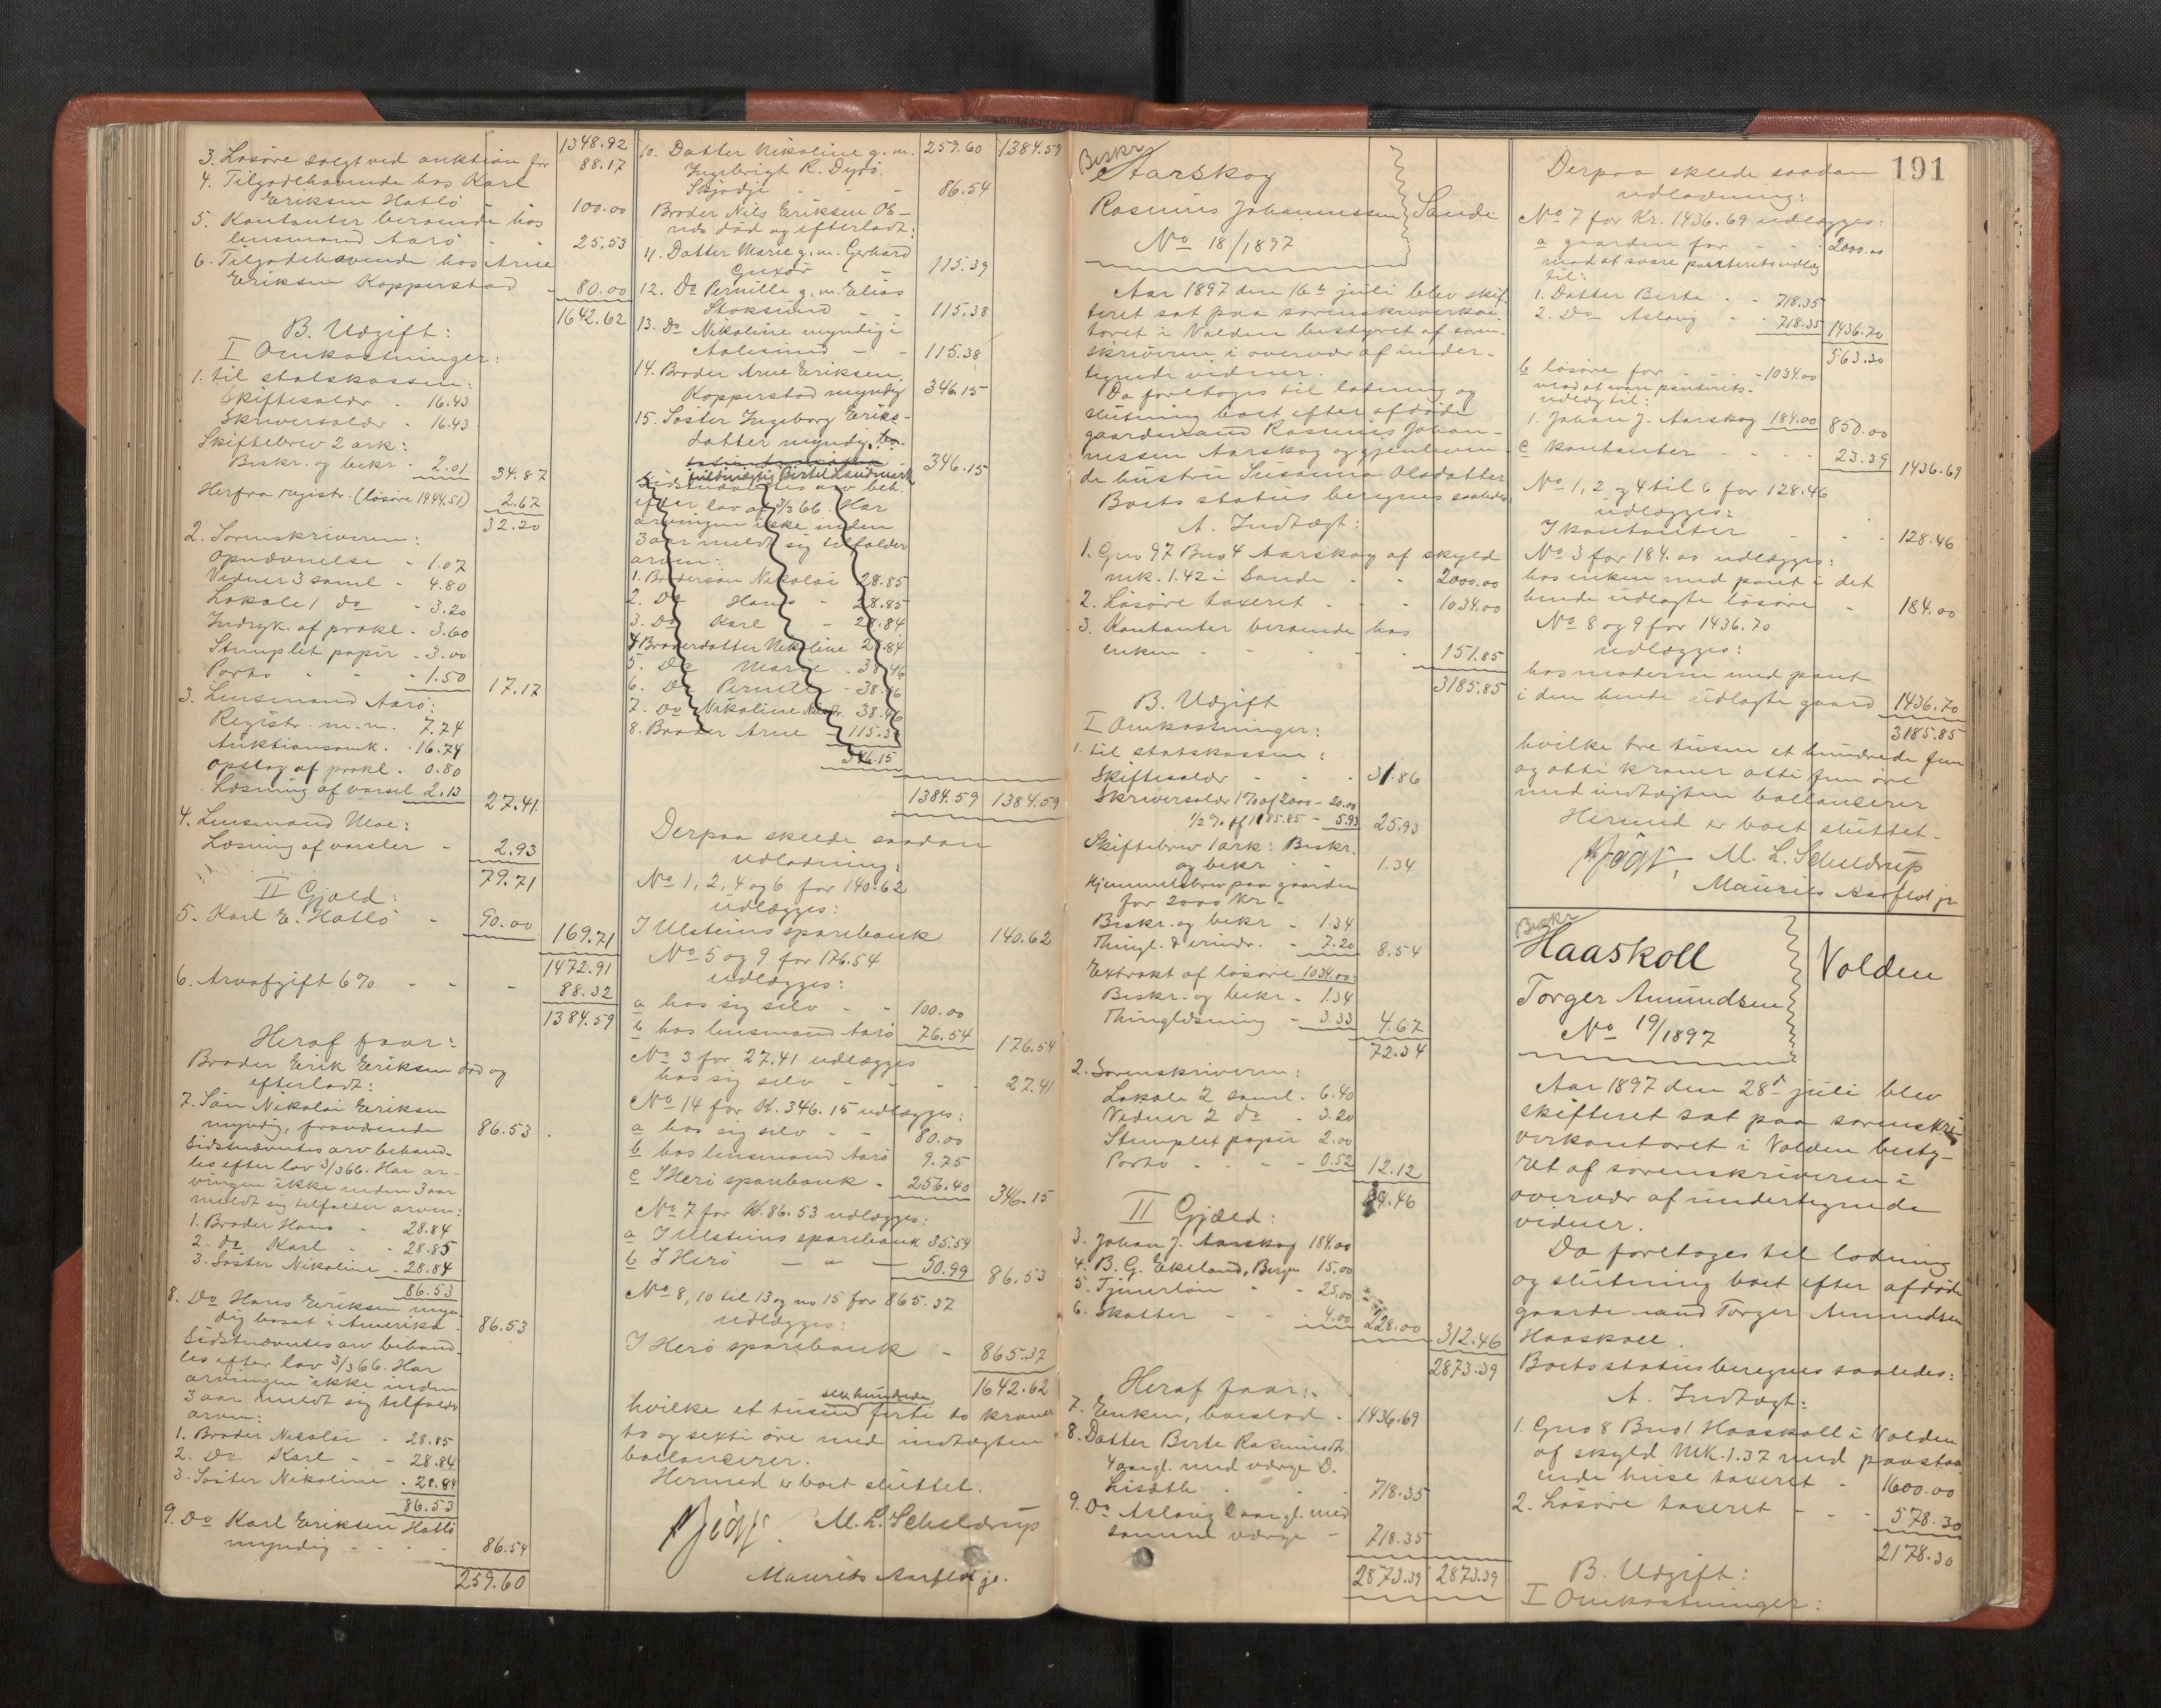 1348.92
3. Løsøre solgt ved auktion for 88.17
4. Tilgodehavende hos Karl
Eriksen Hatlö - 100.00
5. Kontanter beroende hos
lensmand Aarö - 25.53
6. Tilgodehavende hos Arne
Eriksen Kopperstad - 80.00
1642.62
B. Udgift:
I Omkostninger:
1. til statskassen:
Skiftesalær - 16.43
Skriversalær - 16.43
Skiftebrev 2 ark:
Beskr. og bekr. - 2.01 34.87
Herfra registr. (løsøre 1444.51) 2.67
32.20
2. Sorenskriveren:
Opnævnelse - 1.07
Vidner 3 saml - 4.80
Lokale 1 do - 3.20
Indryk. af prokl. - 3.60
Stemplet papir - 3.00
Porto - - 1.50 17.17
3. Lensmand Aarö:
Registr. m.m. 7.74
Auktionsomk. - 16.74
Opslag af prokl. - 0.80
Læsning af varsel 2.13 27.41
4. Lensmand Moe:
Læsning af varsler - 2.93
79.71
II Gjæld:
5. Karl E. Hatlö - 90.00 169.71
1472.91
6. Arveafgift 6% - - - 88.32
1384.59
Heraf faar:
Broder Erik Eriksen död og
efterladt:
7. Sön Nikolai Eriksen
myndig, fraværende 86.53
Sidstnævntes arv behand-
les efter lov 3/3 66. Har ar-
vingen ikke inden 3 aar
meldt sig tilfalder arven:
1. Broder Hans - 28.84
2. do Karl - - 28.85
3. Söster Nikoline - 28.84
86.53
8. Do Hans Eriksen myn-
dig bosat i Amerika - 86.53
Sidstnævntes arv behand-
les efter lov 3/3 66. Har
arvingen ikke inden
3 aar meldt sig tilfalder
arven:
1. Broder Nicolai - 28.85
2. Do Karl - - 28.84
3. Söster Nikoline - 28.84
86.53
9. Do Karl Eriksen Hatlö
myndig - - - - 86.54
259.60
10. Datter Nikoline g.m. 259.60 1384.59
Ingebrigt R. Dyrö.
Skjodje - - 86.54
Broder Nils Eriksen
död og efterladt:
11. Datter Marie g.m. Gerhard
- - 115.39
12. Do Pernille g.m. Elias
Stoksund - - 115.38
13. Do Nikoline myndig i
Aalesund - - 115.38
14. Broder Arne Eriksen
Kopperstad myndig 346.15
15. Söster Ingeborg Eriks-
datter myndig, bo-
346.15
Sidstnævntes arv beh.
efter lov af 3/3 66. Har
arvingen ikke inden
3 aar meldt sig tilfalder
arven:
1. Brodersön Nikolai 28.85
2. Do Hans - 28.85
3. Do Karl - 28.84
4. Broderdatter Nikoline 28.84
5. Do Marie - 38.46
6. Do Pernille - 38.46
7. Do Nikoline Nilsdr. 38.46
8. Broder Arne - 115.39
346.15
1384.59 1384.59
Derpaa skeede saadan
udlodning:
No 1, 2, 4 og 6 for 140.62
udlægges:
I Ulsteins sparebank 140.62
No 5 og 9 for 176.54
udlægges:
a hos sig selv - - 100.00
b hos lensmand Aarö 76.54 176.54
No 3 for 27.41 udlægges
hos sig selv - - - - 27.41
No 14 for K. 346.15 udlægges:
a hos sig selv - - 80.00
b hos lensmand Aarö 9.75
c I Herö sparebank - 256.40 346.15
No 7 for K. 86.53 udlægges:
a I Ulsteins sparebank 35.54
b I Herö — " — 50.99 86.53
No 8, 10 til 13 og no 15 for 865.37
udlægges:
I Herö sparebank - 865.37
1642.62
sex hundrede
hvilke et tusen firti to kroner
to og sexti öre med indtægten
ballancerer.
Hermed er boet sluttet.
M. L. Scheldrup
Maurits Aarflot jr.
191
Beskr
Aarskog
Rasmus Johannessen Sande
No 18/1897
Aar 1897 den 16de juli blev skif-
teret sat paa sorenskriverkon-
toret i Volden bestyret af soren-
skriveren i overvær af under-
tegnede vidner.
Da foretoges til lodning og
slutning boet efter afdöde
gaardmand Rasmus Johan-
nessen Aarskog og gjenleven-
de hustru Susanna Olsdatter
Boets status beregnes saaledes:
A. Indtægt:
1. Gno 97 Bno 4 Aarskog af skyld
mk. 1.42 i Sande - - 2000.00
2. Løsøre taxeret - - - 1034.00
3. Kontanter beroende hos
enken - - - - 151.85
3185.85
B. Udgift
I Omkostninger:
1. til statskassen:
Skiftesalær - - - 31.86
Skriversalær 1% af 2000 - 20.00
1/2% af 1185.85 - 5.93 25.93
Skiftebrev 1 ark: Beskr.
og bekr - - 1.34
Hjemmelsbrev paa gaarden
for 2000 kr -
Beskr. og bekr - 1.34
Thingl. & erindr. - 7.20 8.54
Extrakt af løsøre 1034.00:
Beskr. og bekr. - 1.34
Thinglæsning - 3.33 4.67
72.34
2. Sorenskriveren:
Lokale 2 saml. - 6.40
Vidner 2 do - 3.20
Stemplet papir 2.00
Porto - - - - 0.52 12.12
84.46
II Gjæld:
3. Johan J. Aarskog 184.00
4. B. G. Ekeland, Bergen 15.00
5. Tjenerlön - - 25.00
6. Skatter - - 4.00 228.00 312.46
2873.39
Heraf faar:
7. Enken, boeslod - 1436.69
8. Datter Berte Rasmusdtr.
4 aar gl. med værge O.
- - - 718.35
9. Do Aslaug 2 aar gl. med
samme værge - 718.35
2873.39 2873.39
Derpaa skeede saadan
udlodning:
No 7 for Kr. 1436.69 udlægges:
a gaarden for - - - 2000.00
mod at svare panteretsudlæg
til:
1. Datter Berte - - 718.35
2. Do Aslaug - - 718.35 1436.70
563.30
b løsøre for - - - 1034.00
mod at svare panterets-
udlæg til:
1. Johan J. Aarskog 184.00 850.00
c kontanter - - - - 23.39 1436.69
No 1, 2 og 4 til 6 for 128.46
udlægges:
I kontanter - - - 128.46
No 3 for 184.00 udlægges:
hos enken med pant i det
hende udlagte løsøre - 184.00
No 8 og 9 for 1436.70
udlægges:
hos moderen med pant
i den hende udlagte gaard 1436.70
3185.85
hvilke tre tusen et hundrede fem
og otti kroner otti fem öre
med indtægten ballancerer
Hermed er boet sluttet.
M. L. Scheldrup
Maurits Aarflot jr
Beskr
Haaskoll Volden
Torger Amundsen
No 19/1897
Aar 1897 den 28de juli blev
skifteret sat paa sorenskri-
verkontoret i Volden besty-
ret af sorenskriveren i
overvær af undertegnede
vidner.
Da foretoges til lodning
og slutning boet efter afdöde
gaardmand Torger Amundsen
Haaskoll.
Boets status beregnes saaledes:
A. Indtægt:
1. Gno 8 Bno 1 Haaskoll i Volden
af skyld Mk. 1.37 med paastaa-
ende huse taxeret - 1600.00
2. Løsøre taxeret - - - 578.30
2178.30
B. Udgift:
I Omkostninger: